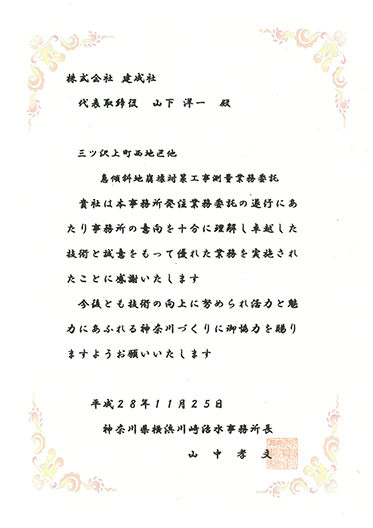 株式会社 建成社
代表取締役 山下 洋一 殿
三ツ沢上町西地区他
急傾斜地崩壊対策工事測量業務委託
貴社は本事務所発注業務委託の遂行にあ
たり事務所の意向を十分に理解し卓越した
技術と誠意をもって優れた業務を実施され
たことに感謝いたします
今後とも技術の向上に努められ活力と魅
力にあふれる神奈川づくりに御協力を賜り
ますようお願いいたします
平成28年11月25日
神奈川県横浜川崎治水事務所長
山中孝文